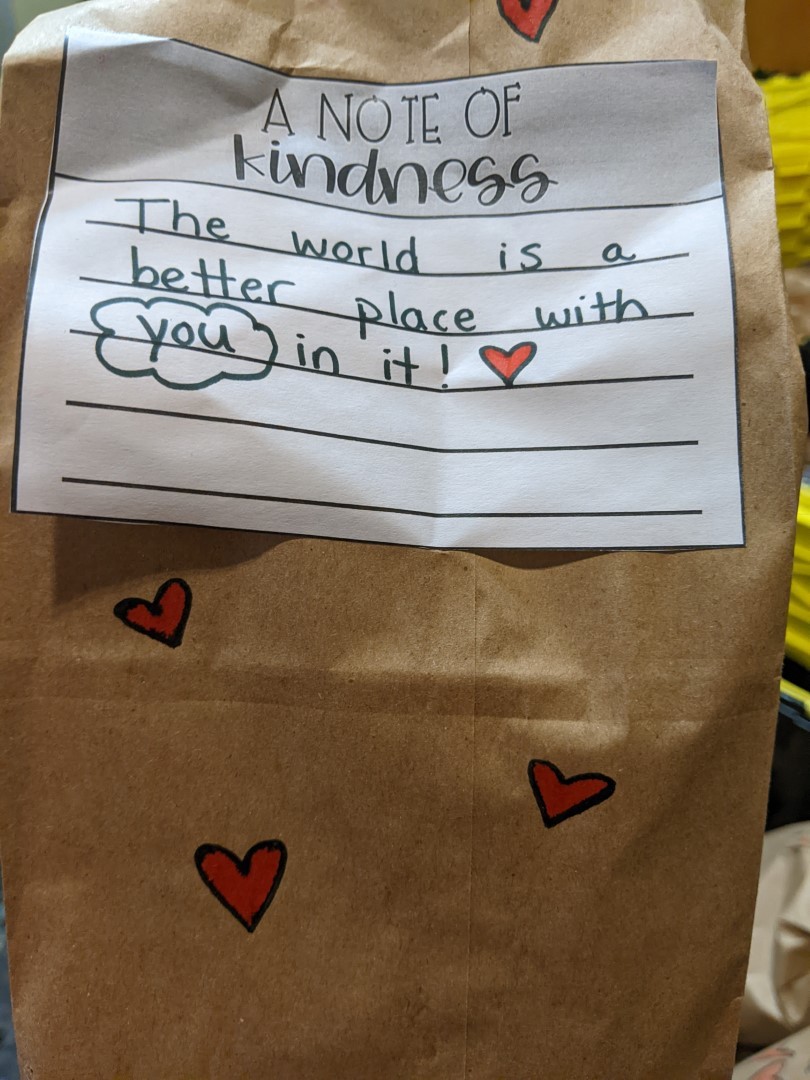 A NOTE OF
kindness
The world is a
better place with
you in it!